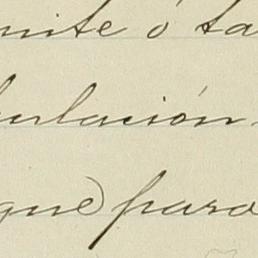 mite ó ta
ulación
que para